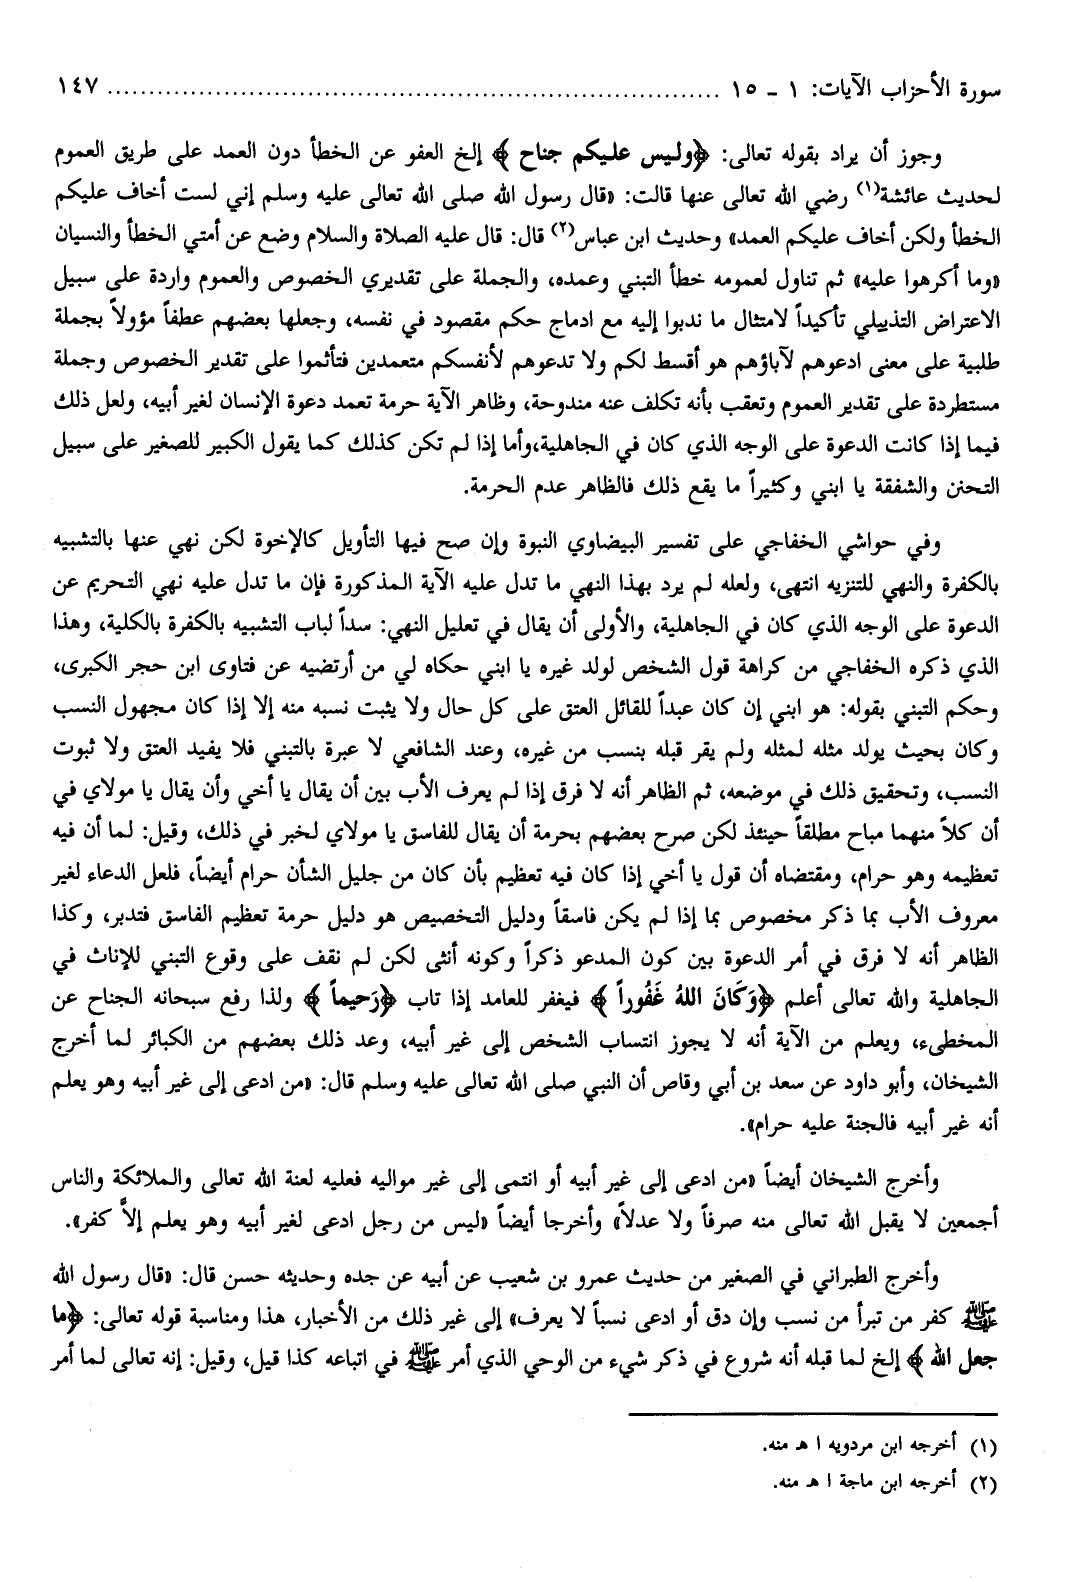 سورة الأحزاب الآيات: ١ ـ ١٥ ........................................................................... ١٤٧
وجوز أن يراد بقوله تعالى: ﴿وليس عليكم جناح﴾ إلخ العفو عن الخطأ دون العمد على طريق العموم
لحديث عائشة(١) رضي الله تعالى عنها قالت: «قال رسول الله صلى الله تعالى عليه وسلم إني لست أخاف عليكم
الخطأ ولكن أخاف عليكم العمد» وحديث ابن عباس(٢) قال: قال عليه الصلاة والسلام وضع عن أمتي الخطأ والنسيان
«وما أكرهوا عليه» ثم تناول لعمومه خطأ التبني وعمده، والجملة على تقديري الخصوص والعموم واردة على سبيل
الاعتراض التذييلي تأكيداً لامتثال ما ندبوا إليه مع ادماج حكم مقصود في نفسه، وجعلها بعضهم عطفاً مؤولاً بجملة
طلبية على معنى ادعوهم لآباؤهم هو أقسط لكم ولا تدعوهم لأنفسكم متعمدين فتأثموا على تقدير الخصوص وجملة
مستطردة على تقدير العموم وتعقب بأنه تكلف عنه مندوحة، وظاهر الآية حرمة تعمد دعوة الإنسان لغير أبيه، ولعل ذلك
فيما إذا كانت الدعوة على الوجه الذي كان في الجاهلية،وأما إذا لم تكن كذلك كما يقول الكبير للصغير على سبيل
التحنن والشفقة يا ابني وكثيراً ما يقع ذلك فالظاهر عدم الحرمة.
وفي حواشي الخفاجي على تفسير البيضاوي النبوة وإن صح فيها التأويل كالإخوة لكن نهي عنها بالتشبيه
بالكفرة والنهي للتنزيه انتهى، ولعله لم يرد بهذا النهي ما تدل عليه الآية المذكورة فإن ما تدل عليه نهي التحريم عن
الدعوة على الوجه الذي كان في الجاهلية، والأولى أن يقال في تعليل النهي: سداً لباب التشبيه بالكفرة بالكلية، وهذا
الذي ذكره الخفاجي من كراهة قول الشخص لولد غيره يا ابني حكاه لي من أرتضيه عن فتاوى ابن حجر الكبرى،
وحكم التبني بقوله: هو ابني إن كان عبداً للقائل العتق على كل حال ولا يثبت نسبه منه إلا إذا كان مجهول النسب
وكان بحيث يولد مثله لمثله ولم يقر قبله بنسب من غيره، وعند الشافعي لا عبرة بالتبني فلا يفيد العتق ولا ثبوت
النسب، وتحقيق ذلك في موضعه، ثم الظاهر أنه لا فرق إذا لم يعرف الأب بين أن يقال يا أخي وأن يقال يا مولاي في
أن كلاً منهما مباح مطلقاً حينئذ لكن صرح بعضهم بحرمة أن يقال للفاسق يا مولاي لخبر في ذلك، وقيل: لما أن فيه
تعظيمه وهو حرام، ومقتضاه أن قول يا أخي إذا كان فيه تعظيم بأن كان من جليل الشأن حرام أيضاً، فلعل الدعاء لغير
معروف الأب بما ذكر مخصوص بما إذا لم يكن فاسقاً ودليل التخصيص هو دليل حرمة تعظيم الفاسق فتدبر، وكذا
الظاهر أنه لا فرق في أمر الدعوة بين كون المدعو ذكراً وكونه أنثى لكن لم نقف على وقوع التبني للإناث في
الجاهلية والله تعالى أعلم ﴿وَكَانَ اللهُ غَفُوراً﴾ فيغفر للعامد إذا تاب ﴿رَحيماً﴾ ولذا رفع سبحانه الجناح عن
المخطىء، ويعلم من الآية أنه لا يجوز انتساب الشخص إلى غير أبيه، وعد ذلك بعضهم من الكبائر لما أخرج
الشيخان، وأبو داود عن سعد بن أبي وقاص أن النبي صلى الله تعالى عليه وسلم قال: «من ادعى إلى غير أبيه وهو يعلم
أنه غير أبيه فالجنة عليه حرام».
وأخرج الشيخان أيضاً «من ادعى إلى غير أبيه أو انتمى إلى غير مواليه فعليه لعنة الله تعالى والملائكة والناس
أجمعين لا يقبل الله تعالى منه صرفاً ولا عدلاً» وأخرجا أيضاً «ليس من رجل ادعى لغير أبيه وهو يعلم إلاَّ كفر».
وأخرج الطبراني في الصغير من حديث عمرو بن شعيب عن أبيه عن جده وحديثه حسن قال: «قال رسول الله
ﷺ كفر من تبرأ من نسب وإن دق أو ادعى نسباً لا يعرف» إلى غير ذلك من الأخبار، هذا ومناسبة قوله تعالى: ﴿ما
جعل الله﴾ إلخ لما قبله أنه شروع في ذكر شيء من الوحي الذي أمر ﷺ في اتباعه كذا قيل، وقيل: إنه تعالى لما أمر
(١) أخرجه ابن مردويه ا هـ منه.
(٢) أخرجه ابن ماجة ا هـ منه.